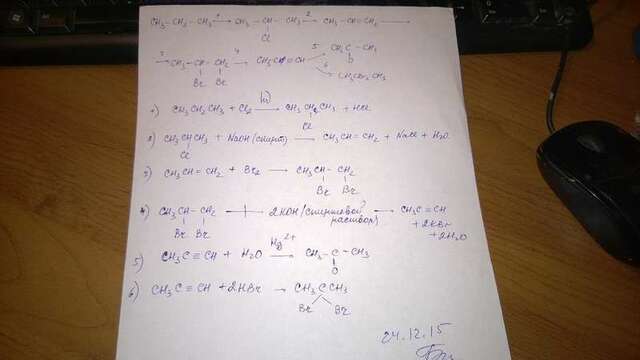 CH₃–CH₂–CH₃ →¹ CH₃–CH–CH₃ →² CH₃–CH=CH₂ →
Cl
→³ CH₃–CH–CH₂ →⁴ CH₃C≡CH →⁵ CH₃C–CH₃
Br Br O
→⁶ CH₃CBr₂CH₃
hν
1) CH₃CH₂CH₃ + Cl₂ → CH₃CHCH₃ + HCl
Cl
2) CH₃CHCH₃ + NaOH (спирт) → CH₃CH=CH₂ + NaCl + H₂O
Cl
3) CH₃CH=CH₂ + Br₂ → CH₃CH–CH₂
Br Br
4) CH₃CH–CH₂ + 2KOH (спиртовой раствор) → CH₃C≡CH
Br Br + 2KBr
+ 2H₂O
Hg²⁺
5) CH₃C≡CH + H₂O → CH₃–C–CH₃
O
6) CH₃C≡CH + 2HBr → CH₃CCH₃
Br Br
24.12.15